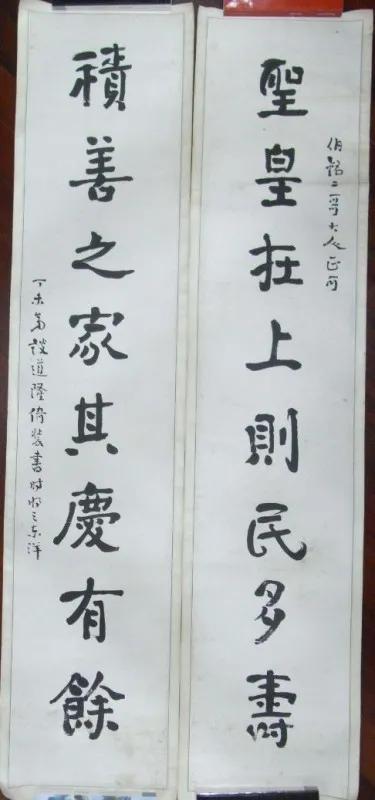 伯銘二哥大人正可
聖皇在上則民多壽
積善之家其慶有餘
丁未 談道隆倚裝書時將之東洋